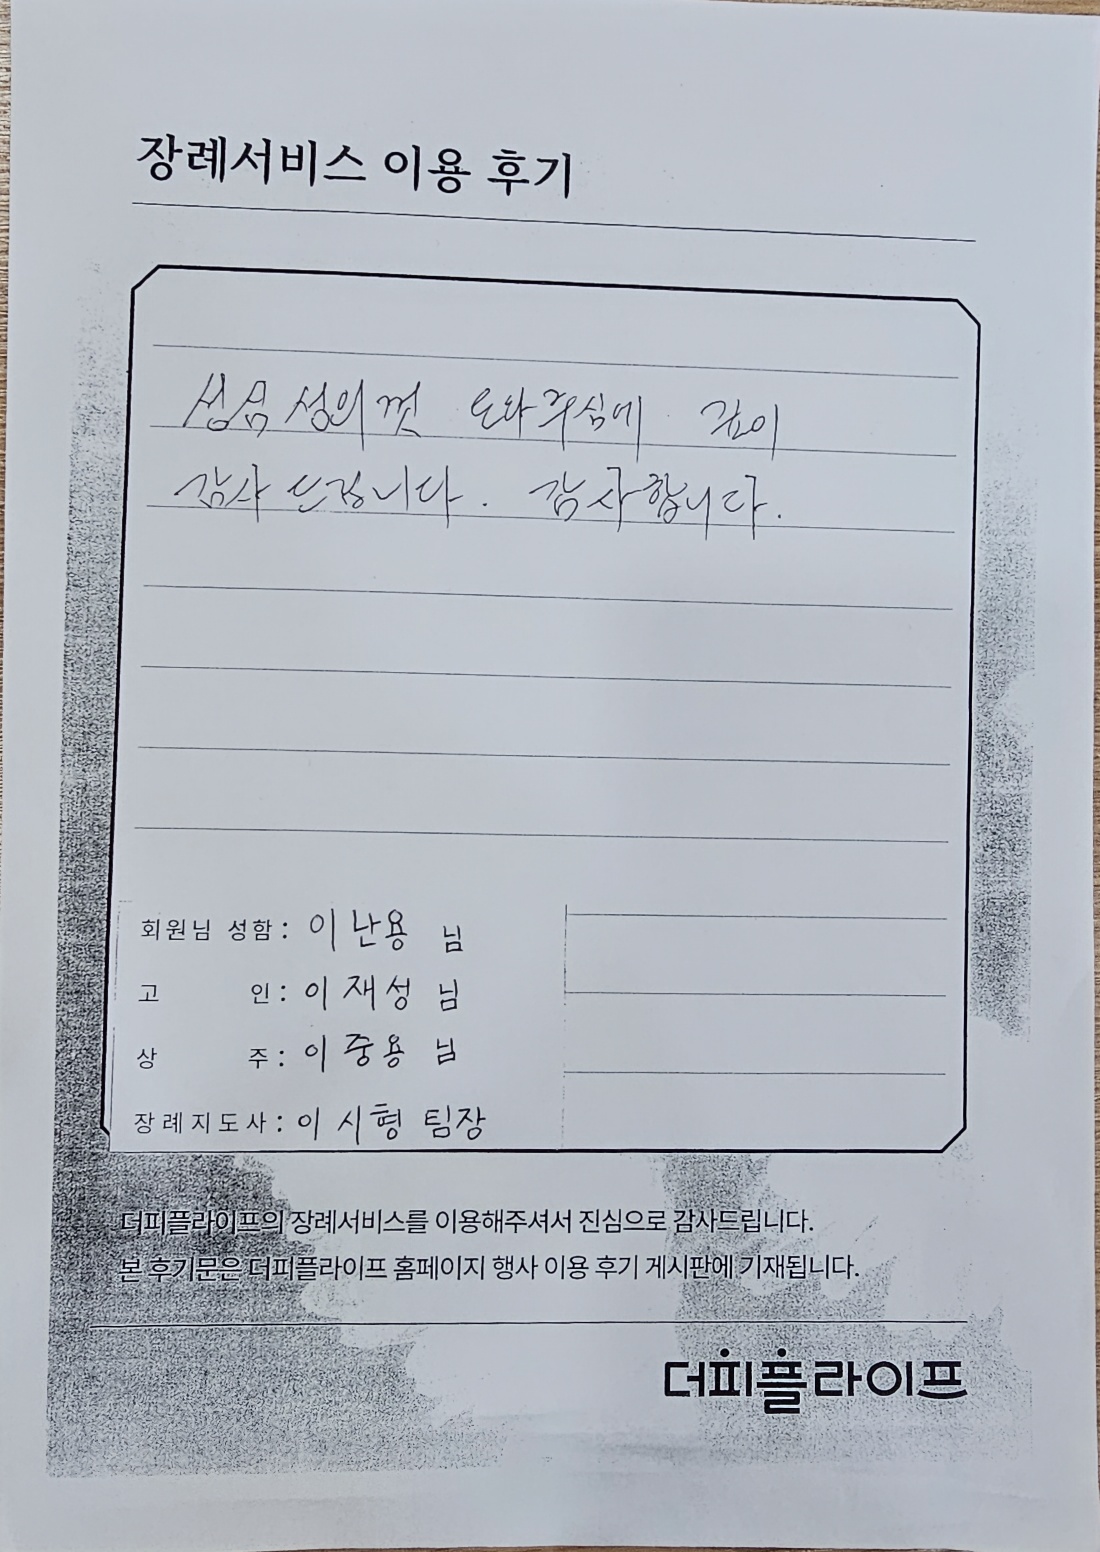 장례서비스 이용 후기
성심 성의껏 도와 주심에 깊이
감사 드립니다. 감사합니다.
회원님 성함: 이난용 님
고 인: 이재성 님
상 주: 이중용 님
장례지도사: 이시형 팀장
더피플라이프의 장례서비스를 이용해주셔서 진심으로 감사드립니다.
본 후기문은 더피플라이프 홈페이지 행사 이용 후기 게시판에 기재됩니다.
더피플라이프